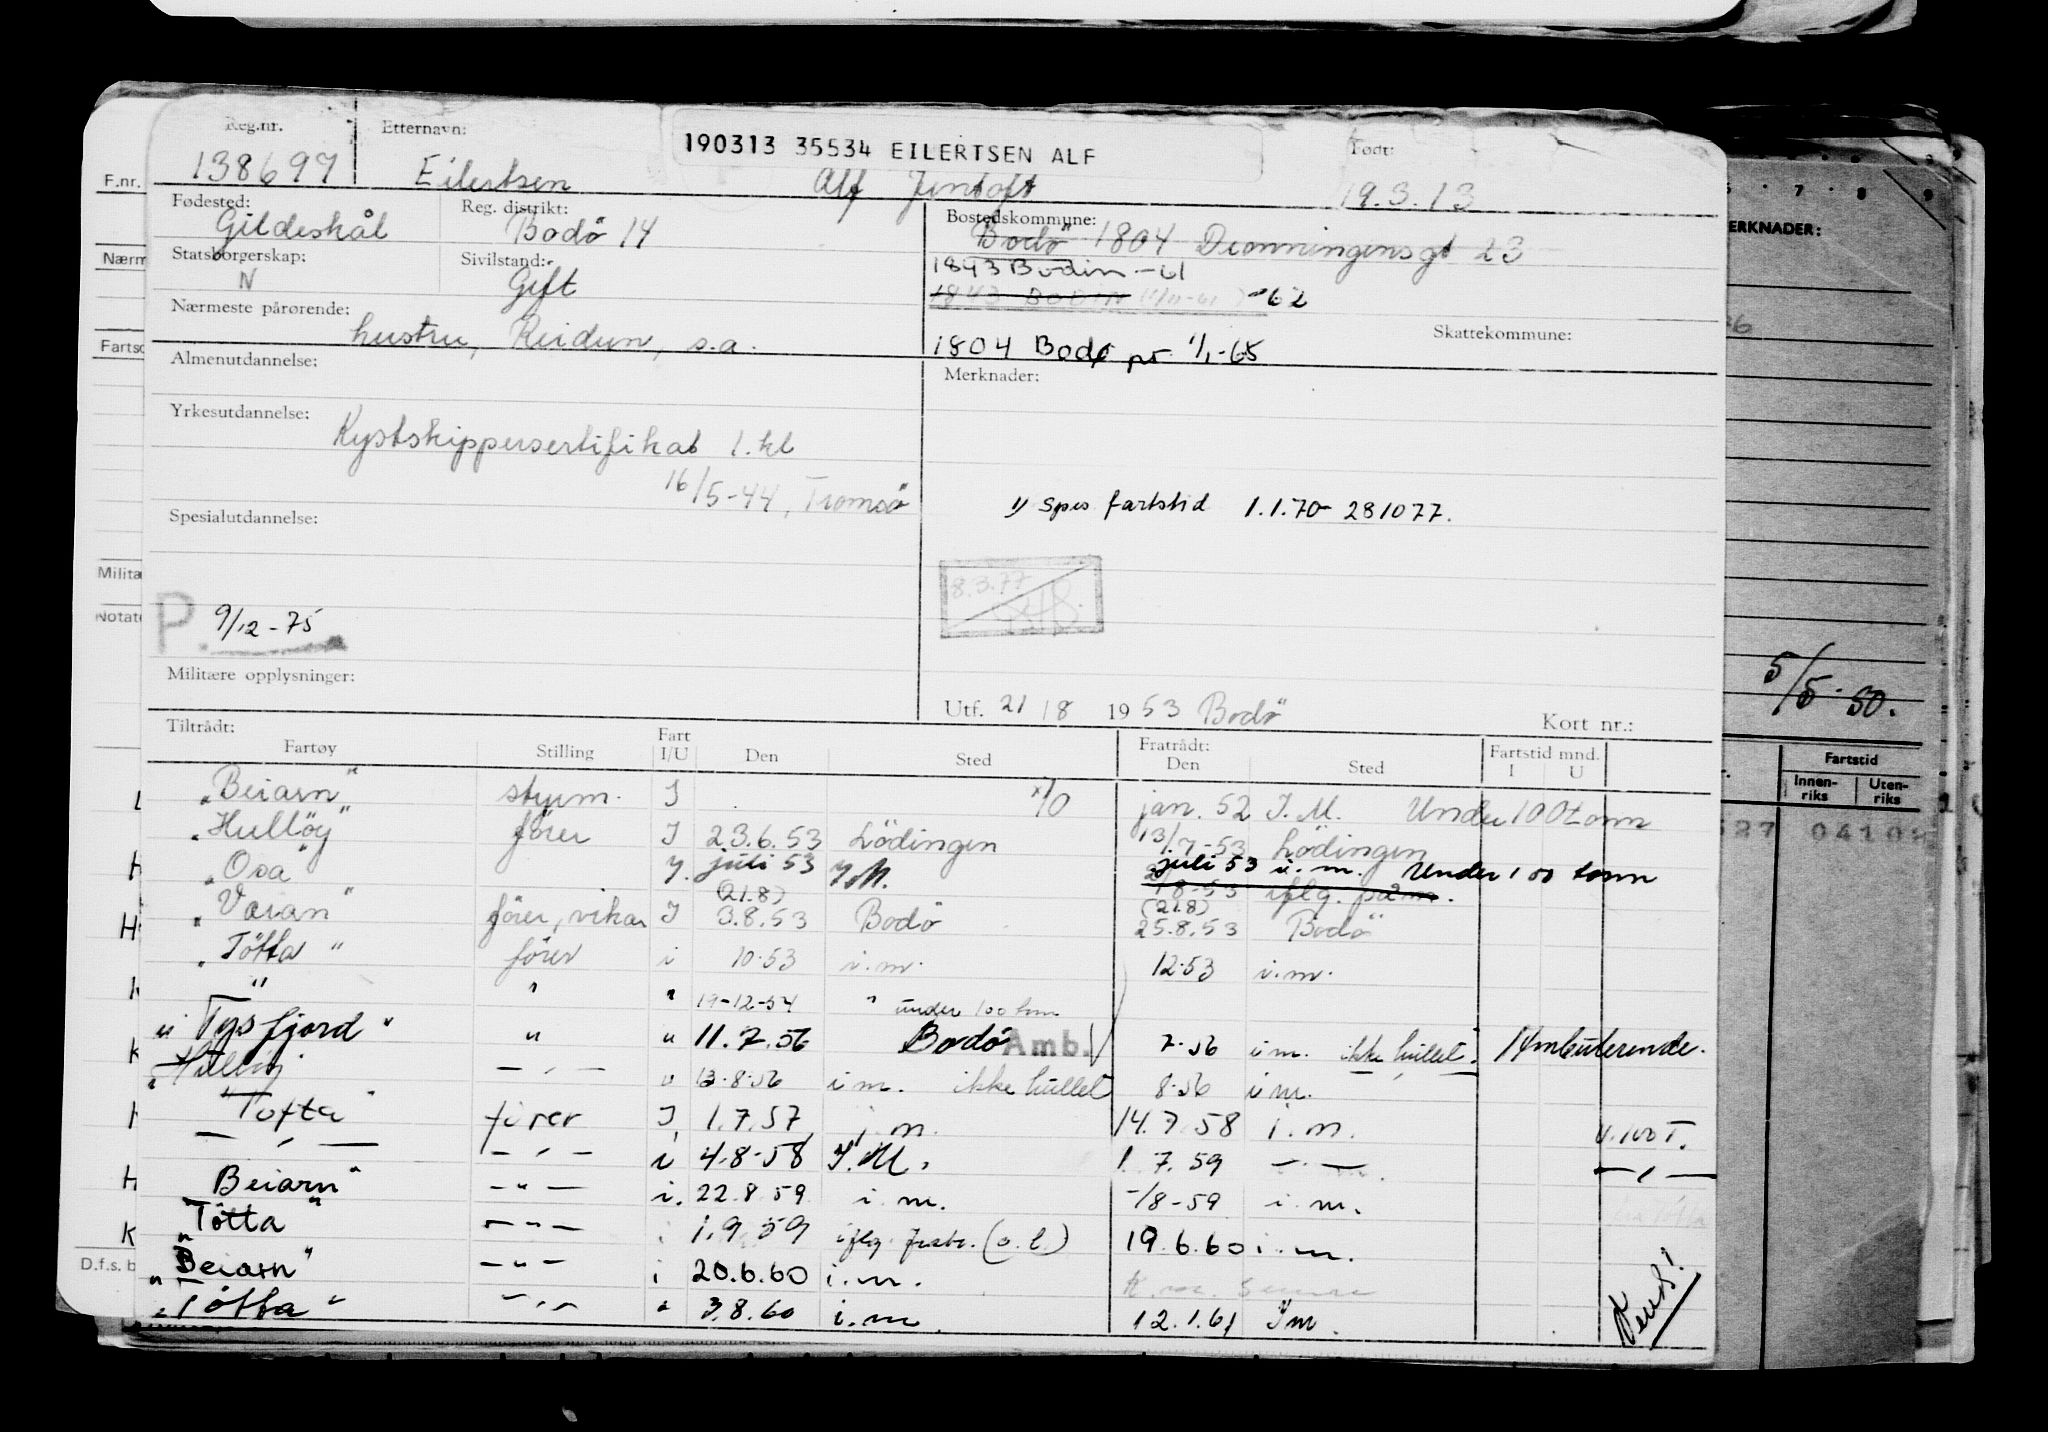 190313 35534 EILERTSEN ALF
Reg.nr. Etternavn: Født:
138697 Eilertsen Alf Jentoft 19.3.13
Fødested: Reg. distrikt: Bostedskommune:
Gildeskål Bodö 14 Bodö 1804 Dronningensgt 23
Statsborgerskap: Sivilstand:
N Gift 1843 Bodin -61
1843 BODIN -62
Nærmeste pårørende: Skattekommune:
hustru, Reidun, s.a. 1804 Bodø pr. 1/1-65
Almenutdannelse: Merknader:
Yrkesutdannelse:
Kystskippersertifikat 1. kl
16/5-44, Tromsö
1) Spes fartstid 1.1.70-281077.
Spesialutdannelse:
8.3.77
P. 9/12-75
Militære opplysninger:
Utf. 21/8 1953 Bodö Kort nr.:
Tiltrådt: Fratrådt: Fartstid mnd.
Fartøy Stilling Fart I/U Den Sted Den Sted I U
"Beiarn" styrm. I jan. 52 I.M. Under 100 tonn
"Hulløy" förer I 23.6.53 Lödingen 13/7-53 Lödingen
"Osa" I. juli 53 I.M. juli 53 i.m. Under 100 tonn
(21.8) 18-53 iflg.
"Varan" förer, vikar I 3.8.53 Bodö (21.8) 25.8.53 Bodö
"Tötta" förer i 10.53 i.m. 12.53 i.m.
" " " 19-12-54 " under 100 tonn
"Tysfjord" " " 11.7.56 Bodö Amb. 7.56 i.m. ikke hullet. Ambulerende.
" 13.8.56 i.m. ikke hullet 8.56 i.m.
"Tøtta" fører I 1.7.57 i.m. 14.7.58 i.m. u.100 T.
— " — — " — i 4.8.58 I.M. 1.7.59 — " — — " —
Beiarn" — " — i. 22.8.59 i.m. -/8-59 i.m.
"Tötta" — " — i 1.9.59 iflg. (o.l.) 19.6.60 i.m.
"Beiarn" — " — i 20.6.60 i.m.
"Tötta" — " — " 3.8.60 i.m. 12.1.61 Im.
Vend!
F.nr.
Nærm
Fartso
Milita
Notate
D.f.s. b
6 7 8 9
ERKNADER:
5/5-50.
Fartstid
Innen-riks Uten-riks